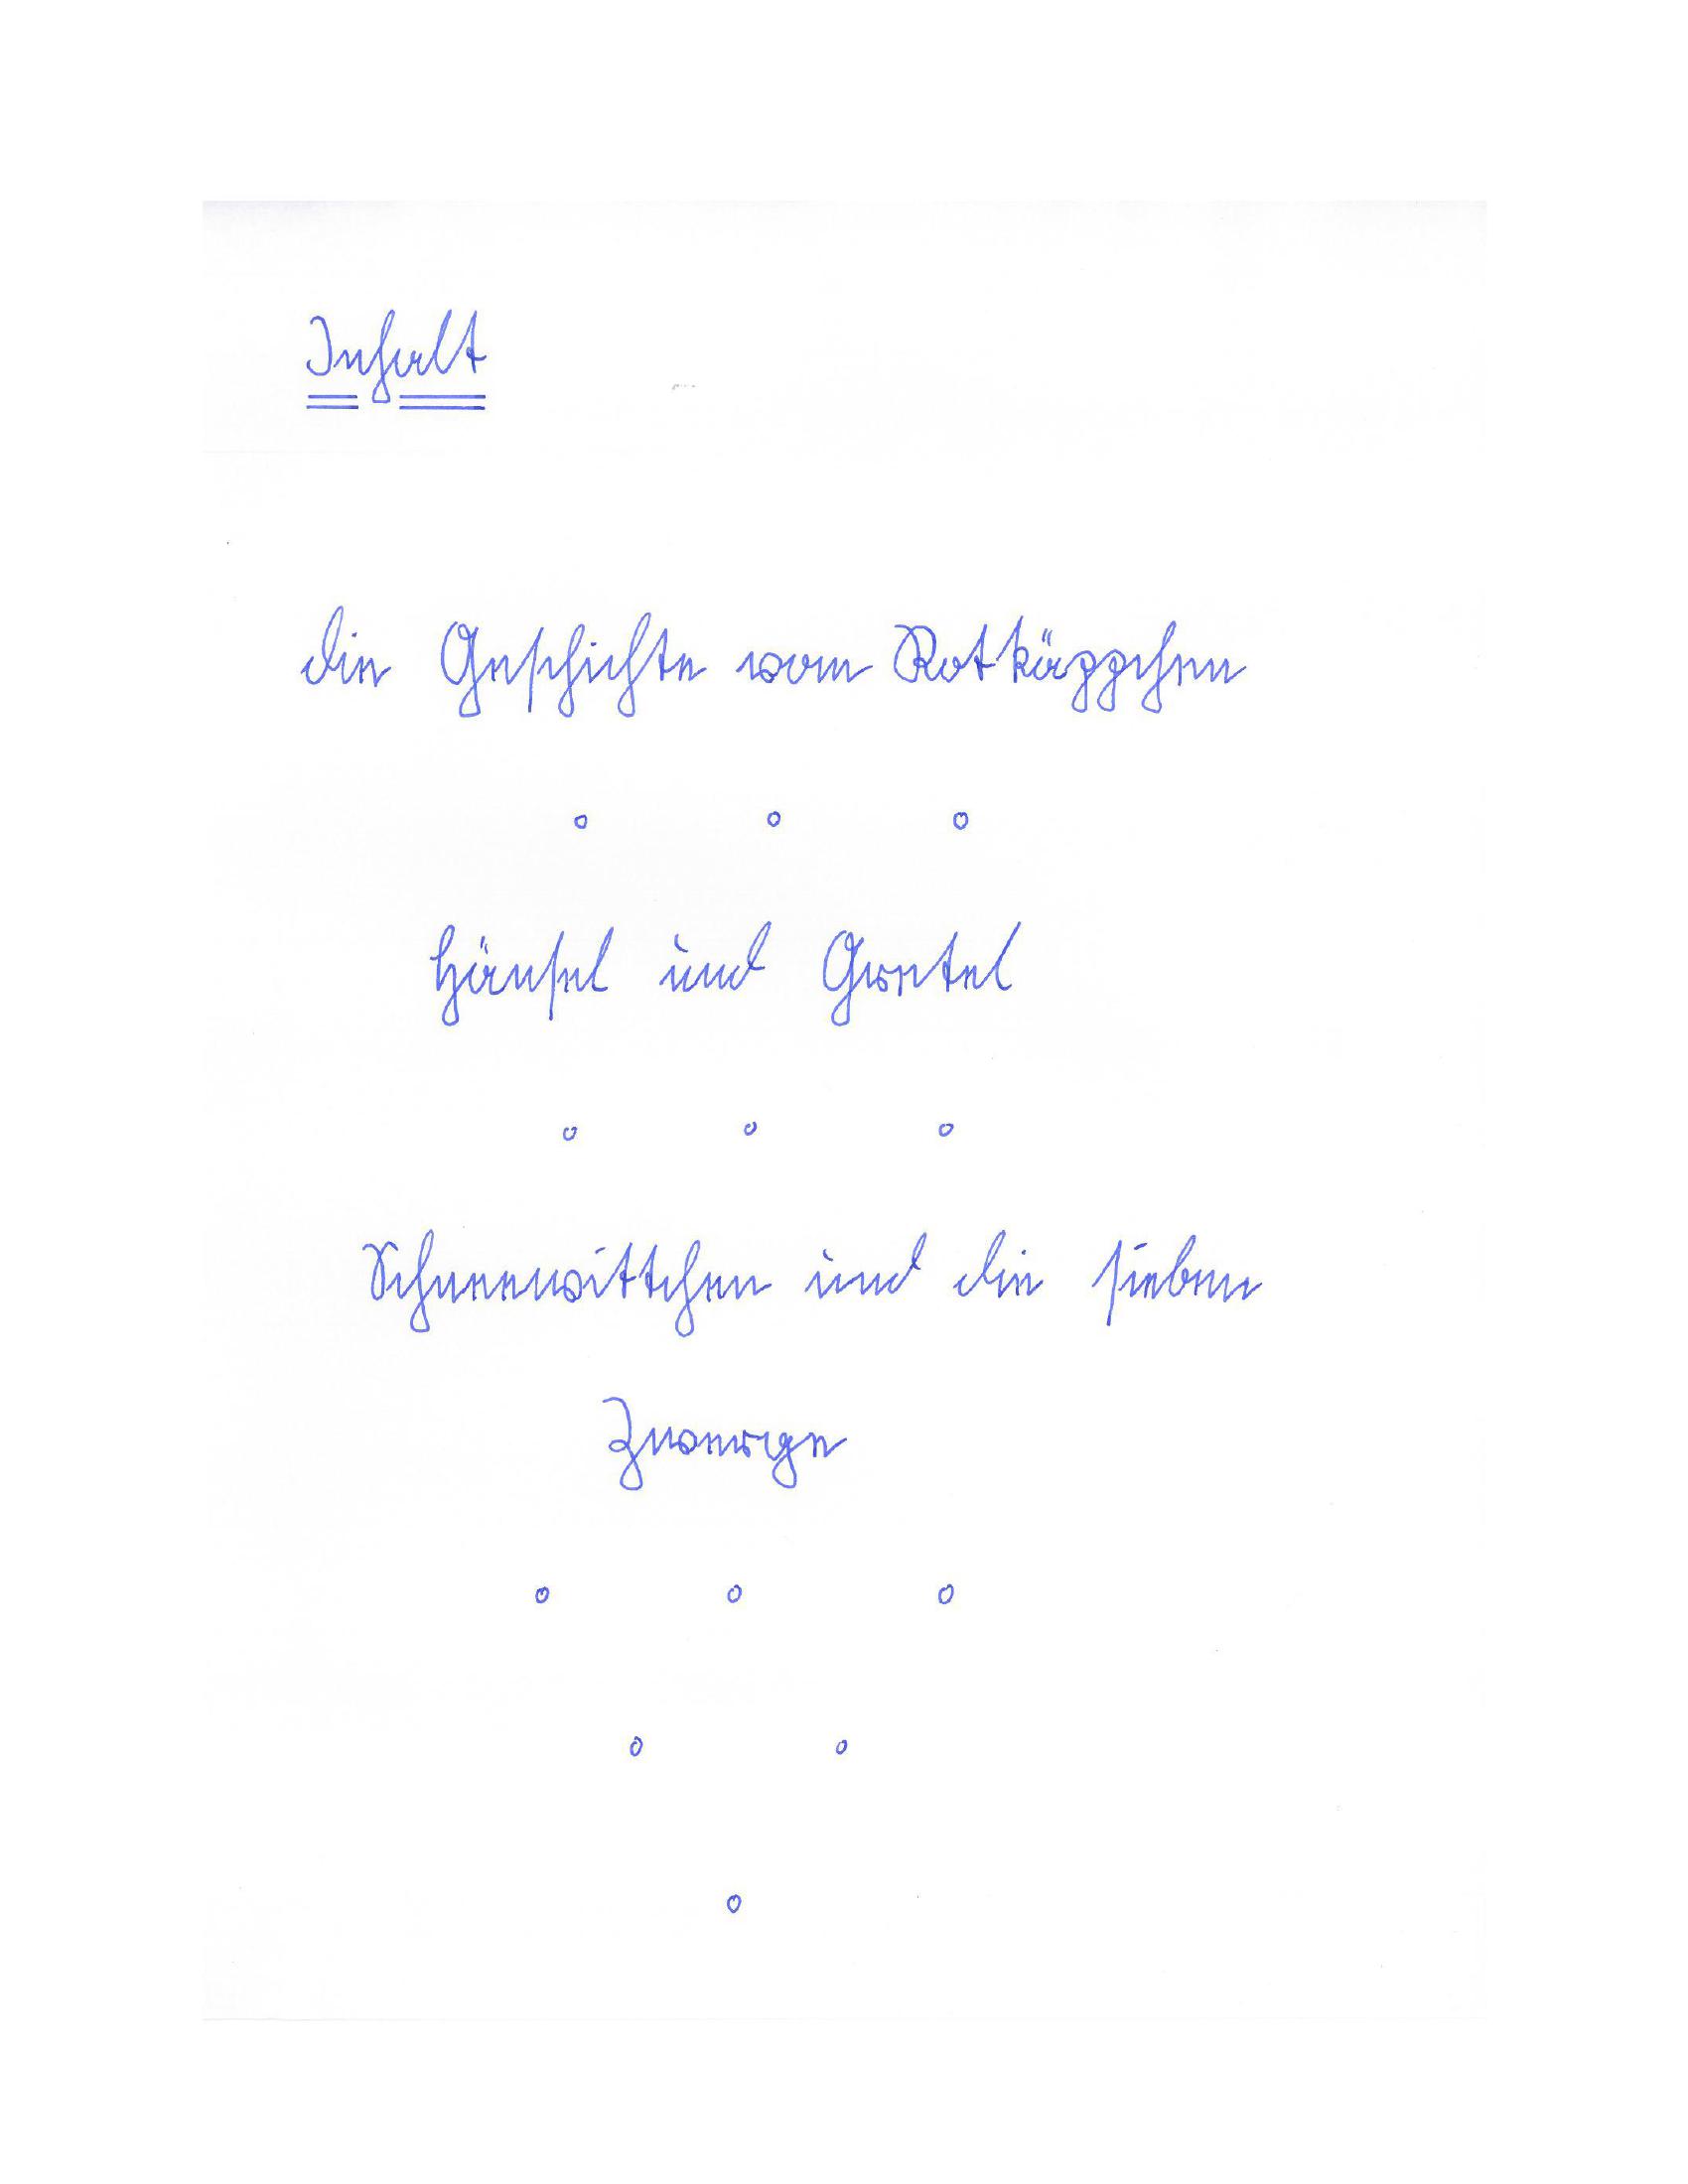 Inhalt
die Geschichte vom Rotkäppchen
Hänsel und Gretel
Schneewittchen und die sieben
Zwerge